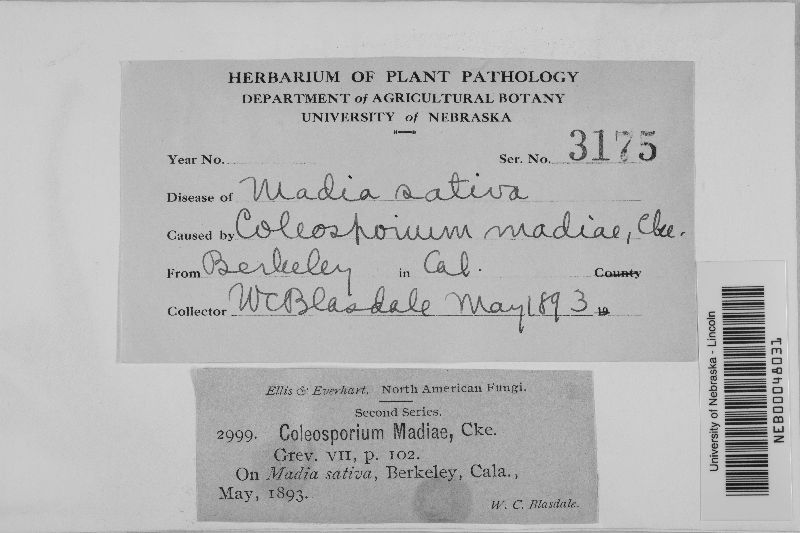 HERBARIUM OF PLANT PATHOLOGY
DEPARTMENT of AGRICULTURAL BOTANY
UNIVERSITY of NEBRASKA
Year No. Ser. No. 3175
Disease of Madia sativa
Caused by Coleosporium madiae, Cke.
From Berkeley in Cal. County
Collector W C Blasdale May 1893 19
Ellis & Everhart, North American Fungi.
Second Series.
2999. Coleosporium Madiae, Cke.
Grev. VII, p. 102.
On Madia sativa, Berkeley, Cala.,
May, 1893.
W. C. Blasdale.
University of Nebraska - Lincoln
NEB00048031